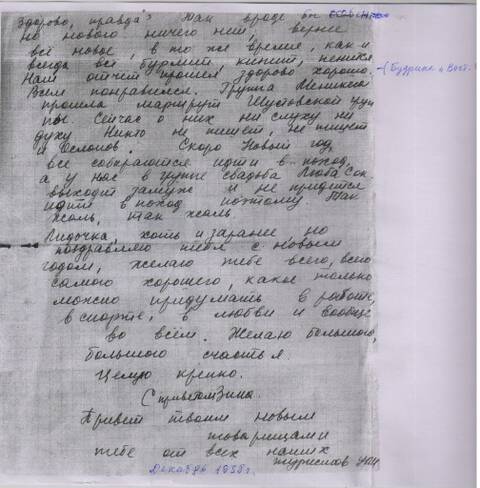 здорово, правда? Так вроде бы
но нового ничего нет, вернее
всё новое, в то же время, как и
всегда всё бурлит, кипит, пенится.
Наш отчёт прошёл здорово, хорошо.
Всем понравился. Группа
прошла маршрут Шустовской груп
пы. Сейчас о них ни слуху ни
духу. Никто не пишет, не пишет
и Ослопов. Скоро Новый год,
все собираются идти в поход,
а у нас в группе свадьба Люба Сок
выходит замуж и не придется
идти в поход поэтому. Так
жаль, так жаль.
Лидочка, хоть и заранее, но
поздравляю тебя с новым
годом, желаю тебе всего, всего
самого хорошего, какое только
можно придумать в работе,
в спорте, в любви и вообще
во всём. Желаю большого,
большого счастья.
Целую крепко.
С приветом Зина.
Привет твоим новым
товарищам и
тебе от всех наших
туристов УПИ
Декабрь 1958 г.